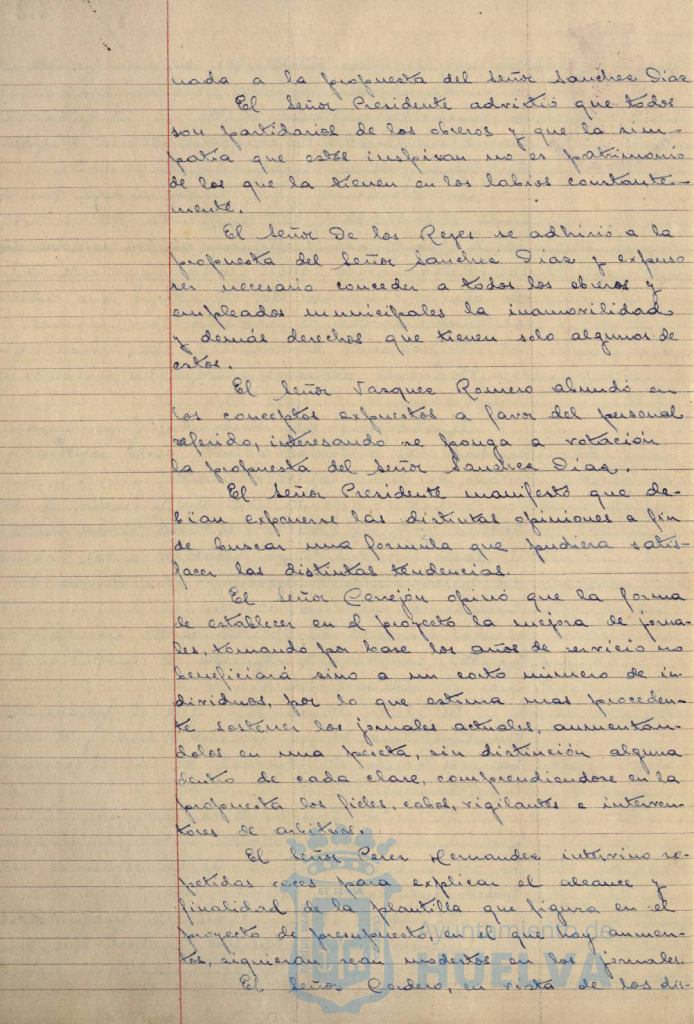 nada a la propuesta del Señor Sanchez Diaz
El Señor Presidente advirtió que todos
son partidarios de los obreros y que la sim-
patia que estos inspiran no es patrimonio
de los que la tienen en los labios constante-
mente.
El Señor De los Reyes se adhirió a la
propuesta del Señor Sanchez Diaz y expuso
ser necesario conceder a todos los obreros y
empleados municipales la inamovilidad
y demás derechos que tienen solo algunos de
estos.
El Señor Vazquez Romero abundó en
los conceptos expuestos a favor del personal
referido, interesando se ponga a votación
la propuesta del Señor Sanchez Diaz.
El Señor Presidente manifestó que de-
bian exponerse las distintas opiniones a fin
de buscar una formula que pudiera satis-
facer las distintas tendencias.
El Señor Cerrejón opinó que la forma
de establecer en el proyecto la mejora de jorna-
les, tomando por base los años de servicio no
beneficiará sino a un corto número de in-
dividuos, por lo que estima mas proceden-
te sostener los jornales actuales, aumentan-
dolos en una peseta, sin distinción alguna
dentro de cada clase, comprendiendose en la
propuesta los fieles, cabos, vigilantes e interven-
tores de arbitrios.
El Señor Perez Hernandez intervino re-
petidas veces para explicar el alcance y
finalidad de la plantilla que figura en el
proyecto de presupuesto, en el que hay aumen-
tos, siquieran sean modestos en los jornales.
El Señor Cordero, en vista de los dis-
Ayuntamiento de
HUELVA